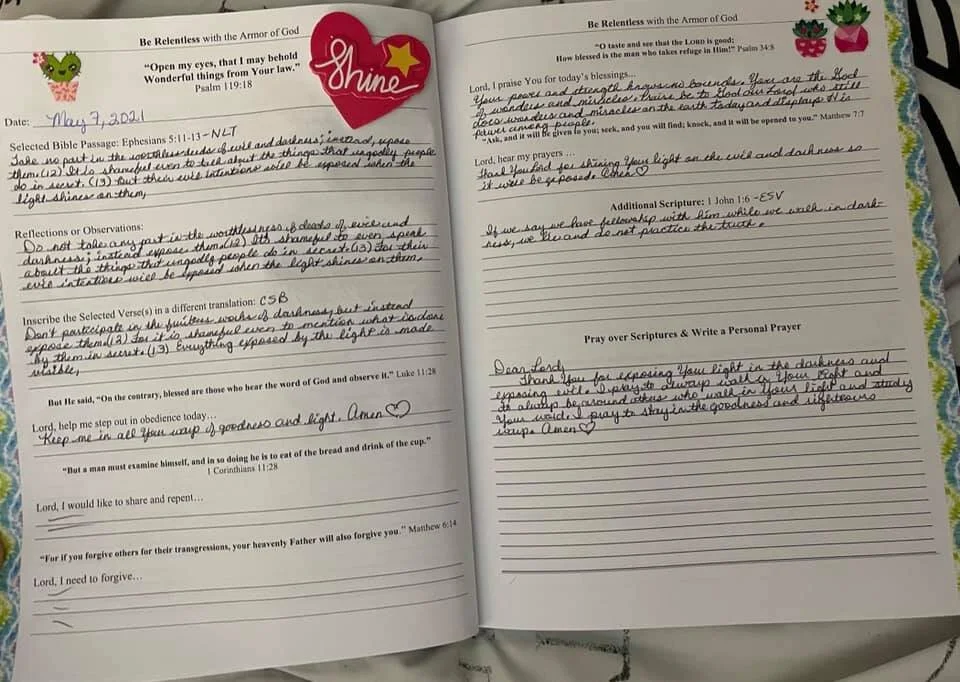 Be Relentless with the Armor of God
"Open my eyes, that I may behold
Wonderful things from Your law."
Psalm 119:18
Shine
Date: May 7, 2021
Selected Bible Passage: Ephesians 5:11-13 - NLT
Take no part in the worthless deeds of evil and darkness; instead, expose
them. (12) It is shameful even to talk about the things that ungodly people
do in secret. (13) But their evil intentions will be exposed when the
light shines on them,
Reflections or Observations:
Do not take any part in the worthlessness of deeds of evil and
darkness; instead expose them. (12) It's shameful to even speak
about the things that ungodly people do in secret. (13) For their
evil intentions will be exposed when the light shines on them,
Inscribe the Selected Verse(s) in a different translation: CSB
Don't participate in the fruitless works of darkness, but instead
expose them. (12) For it is shameful even to mention what is done
by them in secret. (13) Everything exposed by the light is made
visible,
But He said, "On the contrary, blessed are those who hear the word of God and observe it." Luke 11:28
Lord, help me step out in obedience today…
Keep me in all Your ways of goodness and light. Amen ♡
"But a man must examine himself, and in so doing he is to eat of the bread and drink of the cup."
1 Corinthians 11:28
Lord, I would like to share and repent…
"For if you forgive others for their transgressions, your heavenly Father will also forgive you." Matthew 6:14
Lord, I need to forgive…
Be Relentless with the Armor of God
"O taste and see that the LORD is good;
How blessed is the man who takes refuge in Him!" Psalm 34:8
Lord, I praise You for today's blessings…
Your power and strength knows no bounds. You are the God
of wonders and miracles. Praise be to God our Lord who still
does wonders and miracles on the earth today and displays His
power among people.
"Ask, and it will be given to you; seek, and you will find; knock, and it will be opened to you." Matthew 7:7
Lord, hear my prayers …
Thank You Lord for shining Your light on the evil and darkness so
it will be exposed. Amen ♡
Additional Scripture: 1 John 1:6 - ESV
If we say we have fellowship with him while we walk in dark-
ness, we lie and do not practice the truth.
Pray over Scriptures & Write a Personal Prayer
Dear Lord,
Thank You for exposing Your light in the darkness and
exposing evil. I pray to always walk in Your light and
to always be around others who walk in Your light and study
Your word. I pray to stay in the goodness and righteous
ways. Amen ♡